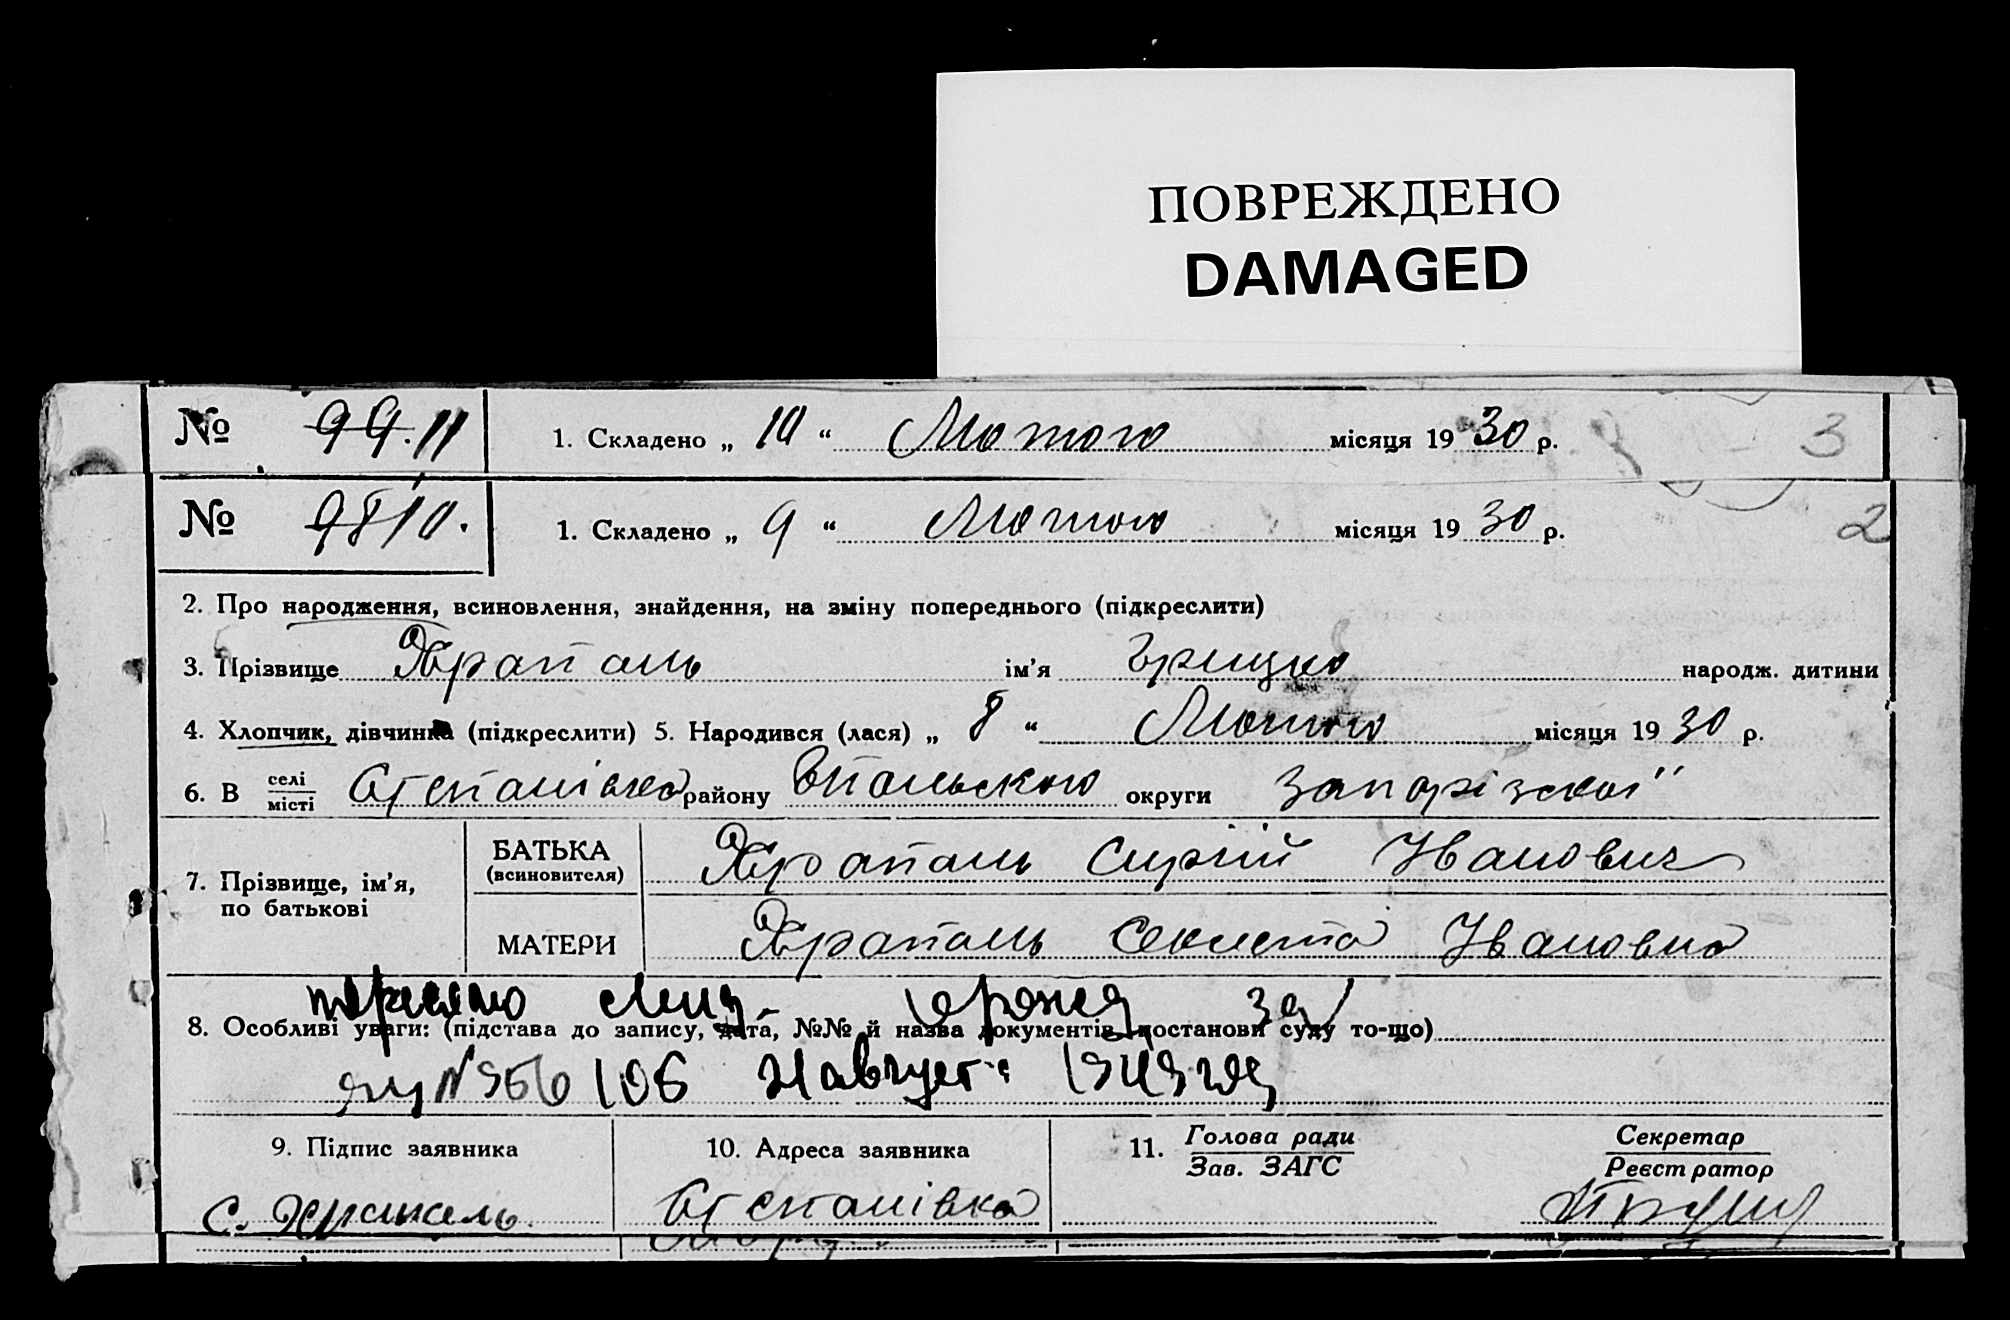 ПОВРЕЖДЕНО
DAMAGED
№ 99.11 1. Складено „ 10 “ Лютого місяця 1930 р. 3
№ 98 10. 1. Складено „ 9 “ Лютого місяця 1930 р. 2
2. Про народження, всиновлення, знайдення, на зміну попереднього (підкреслити)
3. Прізвище Храпаль ім’я Грицко народж. дитини
4. Хлопчик, дівчинка (підкреслити) 5. Народився (лася) „ 8 “ Лютого місяця 1930 р.
6. В селі/місті Степанівка району округи Запорізскої
7. Прізвище, ім’я, по батькові
БАТЬКА (всиновителя) Храпаль Сиргій Иванович
МАТЕРИ Храпаль Секлета Ивановна
8. Особливі уваги: (підстава до запису, дата, №№ й назва документів, постанови суду то-що)
106 августа
9. Підпис заявника 10. Адреса заявника 11. Голова ради/Зав. ЗАГС Секретар/Реєстратор
С. Храпаль. Степанівка